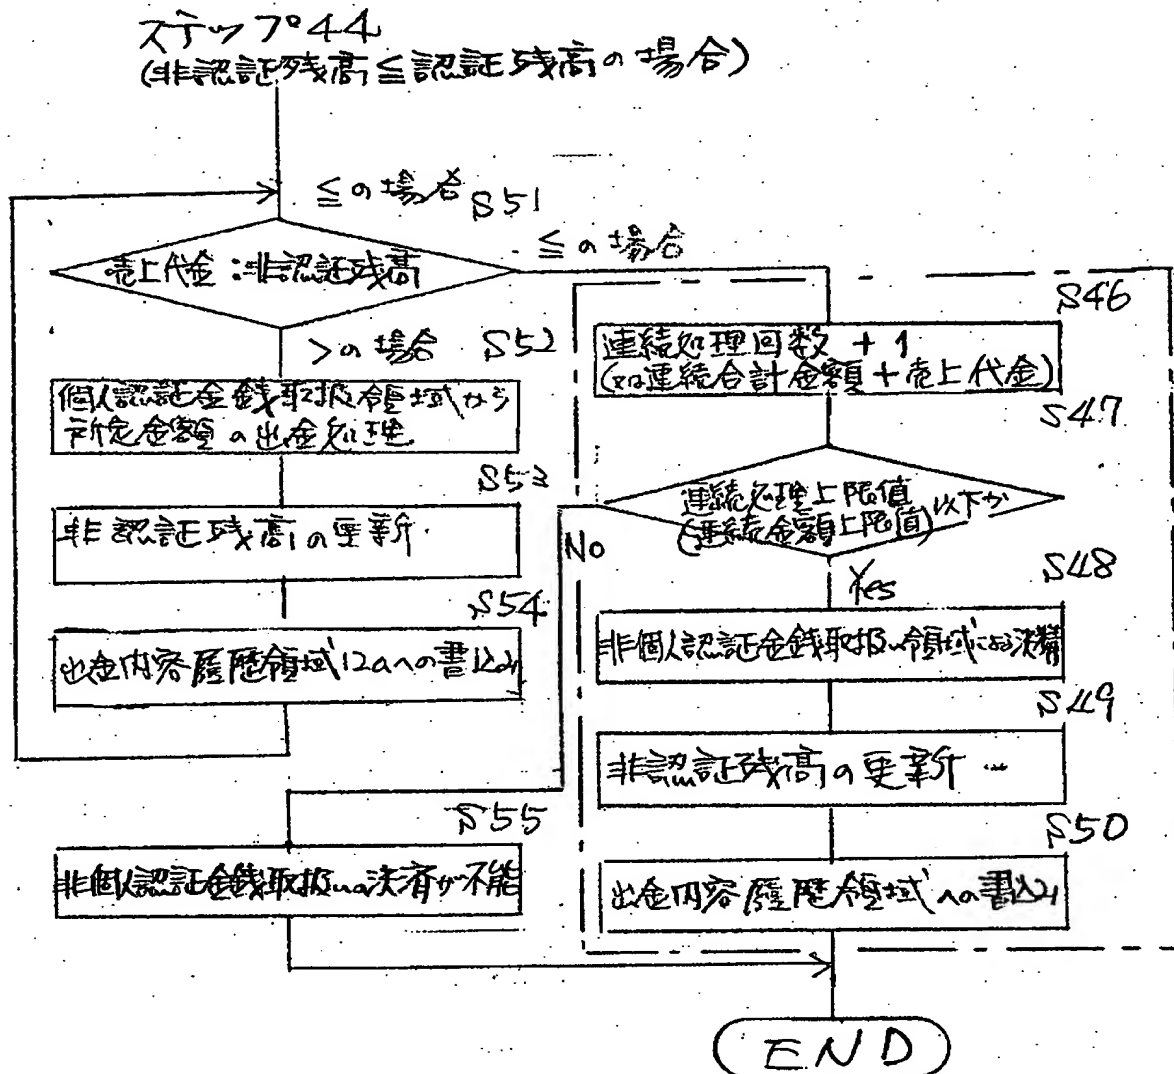 ステップ44
(非認証残高≦認証残高の場合)
≦の場合
S51
売上代金:非認証残高
≦の場合
>の場合
S52
個人認証金銭取扱領域から
所定金額の出金処理
S53
非認証残高の更新
S54
出金内容履歴領域12aへの書込み
S46
連続処理回数+1
(又は連続合計金額+売上代金)
S47
連続処理上限値
(連続金額上限値)以下か
No
Yes
S48
非個人認証金銭取扱い領域による決済
S49
非認証残高の更新
S50
出金内容履歴領域への書込み
S55
非個人認証金銭取扱いの決済が不能
END